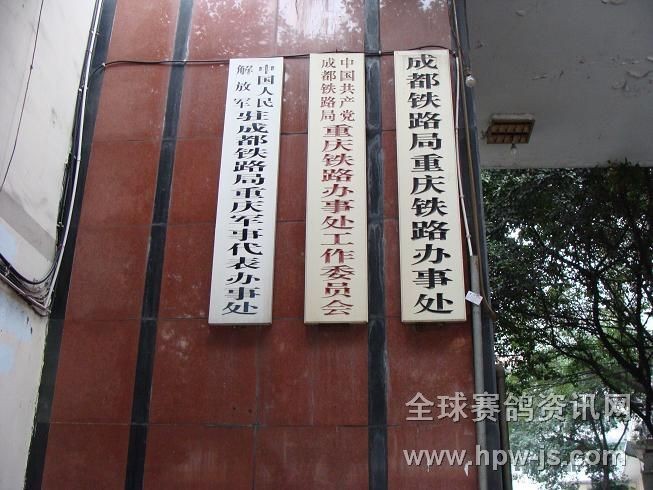 中国人民
解放军
驻成都铁路局重庆军事代表办事处
中国共产党
成都铁路局
重庆铁路办事处工作委员会
成都铁路局重庆铁路办事处
全球赛鸽资讯网
www.hpw-js.com